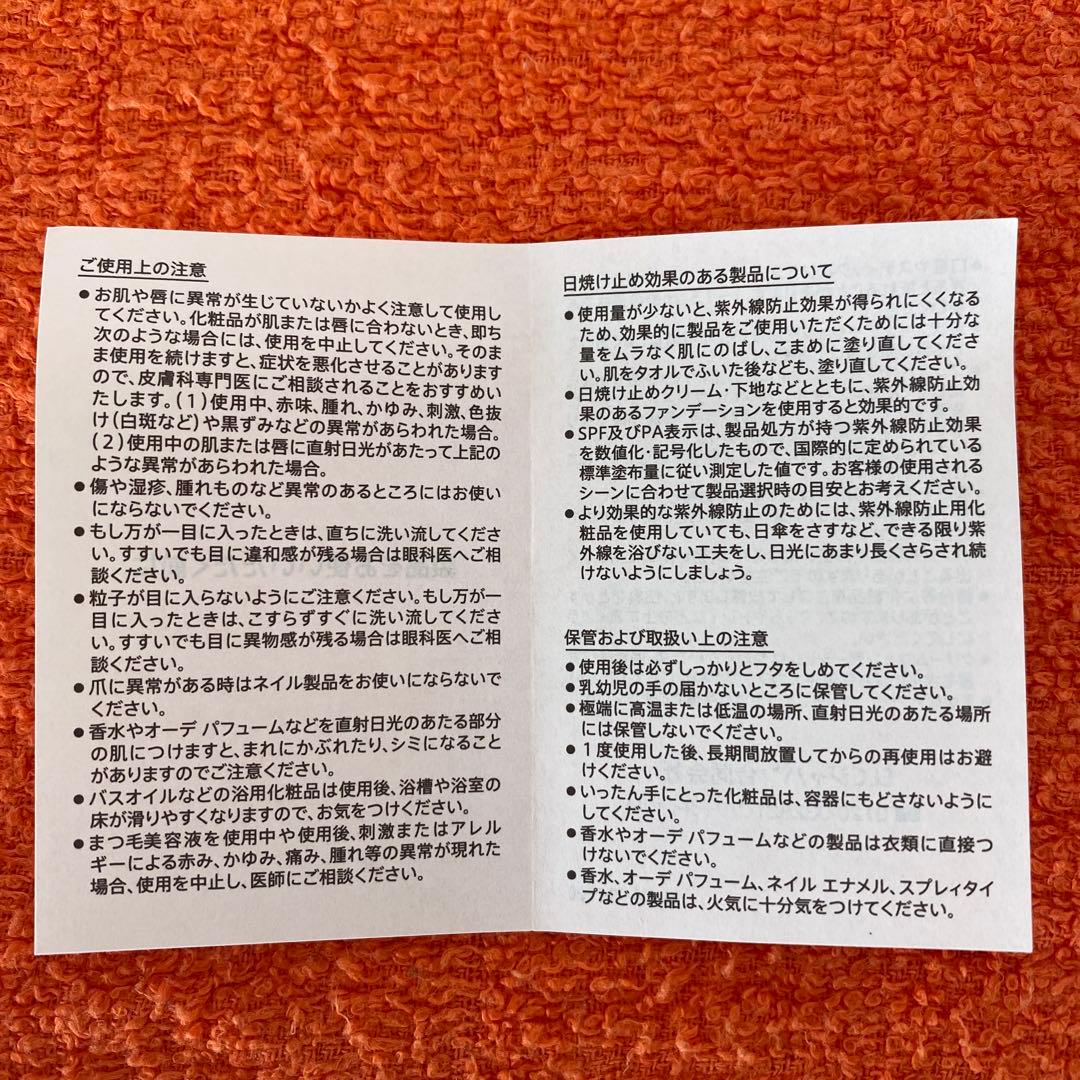 ご使用上の注意
●お肌や唇に異常が生じていないかよく注意して使用し
てください。化粧品が肌または唇に合わないとき、即ち
次のような場合には、使用を中止してください。そのま
ま使用を続けますと、症状を悪化させることがあります
ので、皮膚科専門医にご相談されることをおすすめい
たします。(1)使用中、赤味、腫れ、かゆみ、刺激、色抜
け(白斑など)や黒ずみなどの異常があらわれた場合。
(2)使用中の肌または唇に直射日光があたって上記の
ような異常があらわれた場合。
●傷や湿疹、腫れものなど異常のあるところにはお使い
にならないでください。
●もし万が一目に入ったときは、直ちに洗い流してくださ
い。すすいでも目に違和感が残る場合は眼科医へご相
談ください。
●粒子が目に入らないようにご注意ください。もし万が一
目に入ったときは、こすらずすぐに洗い流してくださ
い。すすいでも目に異物感が残る場合は眼科医へご相
談ください。
●爪に異常がある時はネイル製品をお使いにならないで
ください。
●香水やオーデ パフュームなどを直射日光のあたる部分
の肌につけますと、まれにかぶれたり、シミになること
がありますのでご注意ください。
●バスオイルなどの浴用化粧品は使用後、浴槽や浴室の
床が滑りやすくなりますので、お気をつけください。
●まつ毛美容液を使用中や使用後、刺激またはアレル
ギーによる赤み、かゆみ、痛み、腫れ等の異常が現れた
場合、使用を中止し、医師にご相談ください。
日焼け止め効果のある製品について
●使用量が少ないと、紫外線防止効果が得られにくくなる
ため、効果的に製品をご使用いただくためには十分な
量をムラなく肌にのばし、こまめに塗り直してくださ
い。肌をタオルでふいた後なども、塗り直してください。
●日焼け止めクリーム・下地などとともに、紫外線防止効
果のあるファンデーションを使用すると効果的です。
●SPF及びPA表示は、製品処方が持つ紫外線防止効果
を数値化・記号化したもので、国際的に定められている
標準塗布量に従い測定した値です。お客様の使用される
シーンに合わせて製品選択時の目安とお考えください。
●より効果的な紫外線防止のためには、紫外線防止用化
粧品を使用していても、日傘をさすなど、できる限り紫
外線を浴びない工夫をし、日光にあまり長くさらされ続
けないようにしましょう。
保管および取扱い上の注意
●使用後は必ずしっかりとフタをしめてください。
●乳幼児の手の届かないところに保管してください。
●極端に高温または低温の場所、直射日光のあたる場所
には保管しないでください。
●1度使用した後、長期間放置してからの再使用はお避
けください。
●いったん手にとった化粧品は、容器にもどさないように
してください。
●香水やオーデ パフュームなどの製品は衣類に直接つ
けないでください。
●香水、オーデ パフューム、ネイル エナメル、スプレィタイ
プなどの製品は、火気に十分気をつけてください。